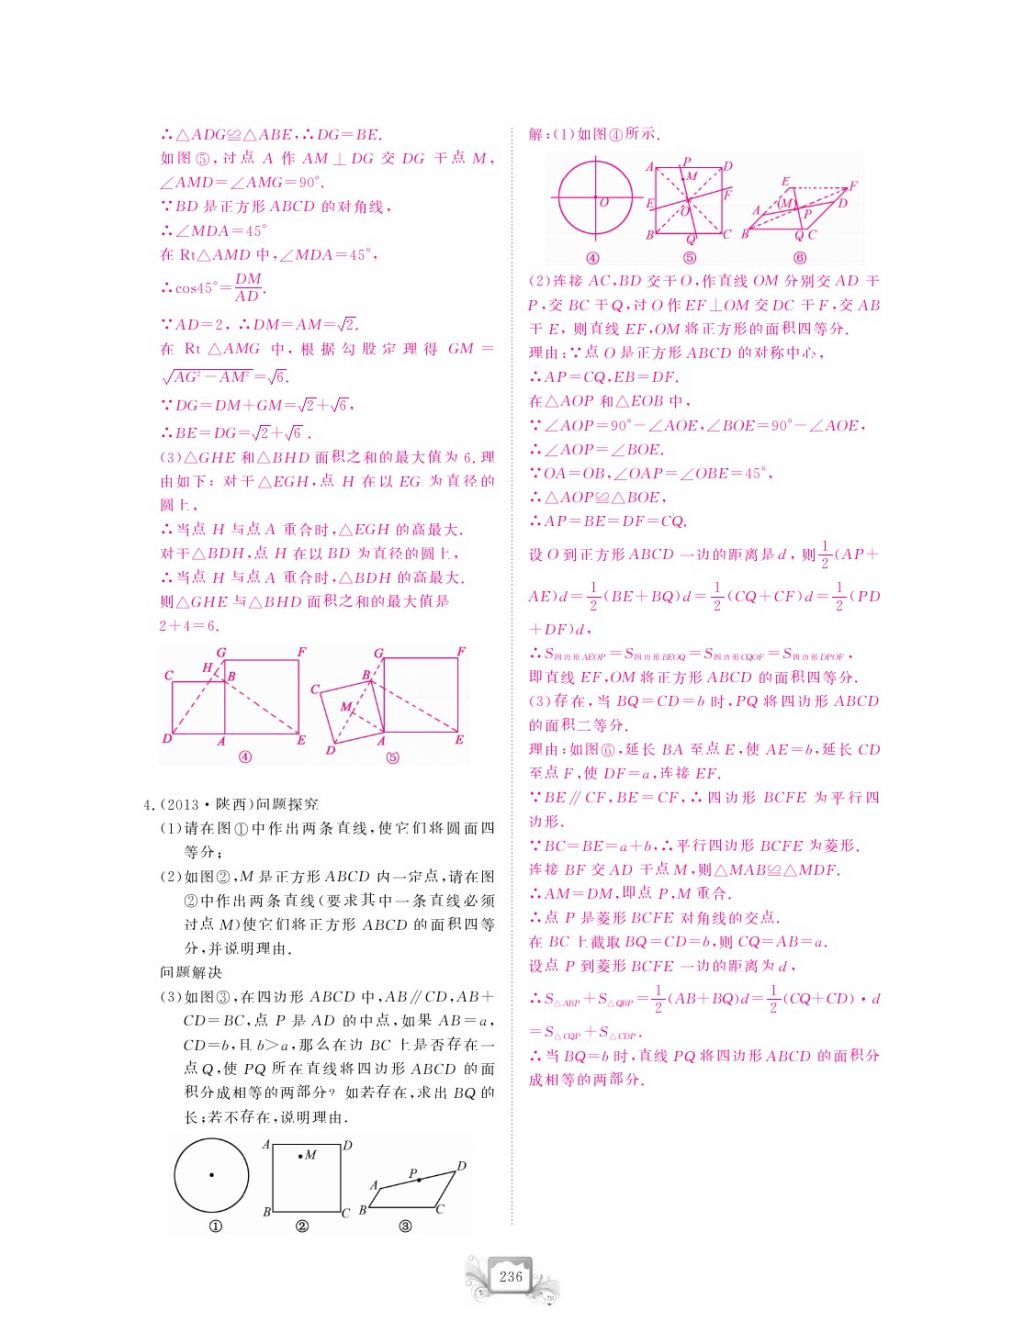 ∴△ADG≌△ABE,∴DG=BE.
如图⑤,过点 A 作 AM⊥DG 交 DG 于点 M,
∠AMD=∠AMG=90°.
∵BD 是正方形 ABCD 的对角线,
∴∠MDA=45°
在 Rt△AMD 中,∠MDA=45°,
∴cos45°=DM/AD.
∵AD=2, ∴DM=AM=√2.
在 Rt△AMG 中,根据勾股定理得 GM=
√(AG²-AM²)=√6.
∵DG=DM+GM=√2+√6,
∴BE=DG=√2+√6.
(3)△GHE 和△BHD 面积之和的最大值为 6.理
由如下: 对于△EGH,点 H 在以 EG 为直径的
圆上,
∴当点 H 与点 A 重合时,△EGH 的高最大.
对于△BDH,点 H 在以 BD 为直径的圆上,
∴当点 H 与点 A 重合时,△BDH 的高最大.
则△GHE 与△BHD 面积之和的最大值是
2+4=6.
G F C H B D A E ④
G F C B M D A E ⑤
4.(2013·陕西)问题探究
(1)请在图①中作出两条直线,使它们将圆面四
等分;
(2)如图②,M 是正方形 ABCD 内一定点,请在图
②中作出两条直线(要求其中一条直线必须
过点 M)使它们将正方形 ABCD 的面积四等
分,并说明理由.
问题解决
(3)如图③,在四边形 ABCD 中,AB∥CD,AB+
CD=BC,点 P 是 AD 的中点,如果 AB=a,
CD=b,且 b>a,那么在边 BC 上是否存在一
点 Q,使 PQ 所在直线将四边形 ABCD 的面
积分成相等的两部分? 如若存在,求出 BQ 的
长;若不存在,说明理由.
①
A D M B C ②
A P D B C ③
解:(1)如图④所示.
O ④
A P D M E F O B Q C ⑤
E F A (M) P D B Q C ⑥
(2)连接 AC,BD 交于 O,作直线 OM 分别交 AD 于
P,交 BC 于 Q,过 O 作 EF⊥OM 交 DC 于 F,交 AB
于 E, 则直线 EF,OM 将正方形的面积四等分.
理由:∵点 O 是正方形 ABCD 的对称中心,
∴AP=CQ,EB=DF.
在△AOP 和△EOB 中,
∵∠AOP=90°-∠AOE,∠BOE=90°-∠AOE,
∴∠AOP=∠BOE.
∵OA=OB,∠OAP=∠OBE=45°,
∴△AOP≌△BOE,
∴AP=BE=DF=CQ.
设 O 到正方形 ABCD 一边的距离是 d, 则1/2(AP+
AE)d=1/2(BE+BQ)d=1/2(CQ+CF)d=1/2(PD
+DF)d,
∴S四边形AEOP=S四边形BEOQ=S四边形CQOF=S四边形DPOF,
即直线 EF,OM 将正方形 ABCD 的面积四等分.
(3)存在,当 BQ=CD=b 时,PQ 将四边形 ABCD
的面积二等分.
理由:如图⑥,延长 BA 至点 E,使 AE=b,延长 CD
至点 F,使 DF=a,连接 EF.
∵BE∥CF,BE=CF,∴四边形 BCFE 为平行四
边形.
∵BC=BE=a+b,∴平行四边形 BCFE 为菱形.
连接 BF 交 AD 于点 M,则△MAB≌△MDF.
∴AM=DM,即点 P,M 重合.
∴点 P 是菱形 BCFE 对角线的交点.
在 BC 上截取 BQ=CD=b,则 CQ=AB=a.
设点 P 到菱形 BCFE 一边的距离为 d,
∴S△ABP+S△QBP=1/2(AB+BQ)d=1/2(CQ+CD)·d
=S△CQP+S△CDP.
∴当 BQ=b 时,直线 PQ 将四边形 ABCD 的面积分
成相等的两部分.
236